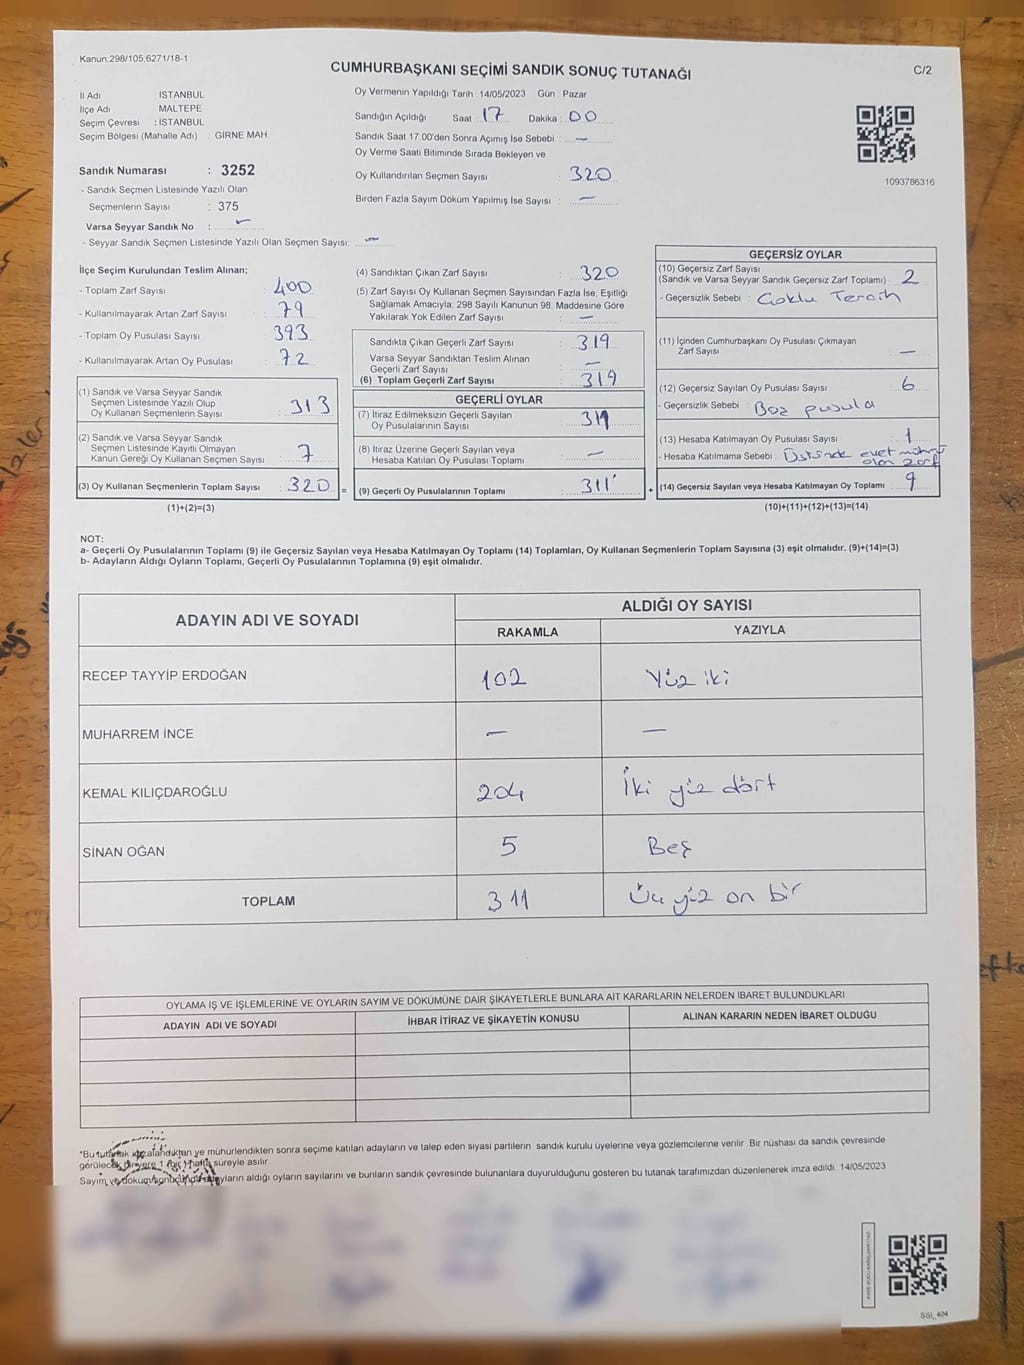 Kanun:298/105;6271/18-1
CUMHURBAŞKANI SEÇİMİ SANDIK SONUÇ TUTANAĞI
C/2
İl Adı İSTANBUL
İlçe Adı MALTEPE
Seçim Çevresi : İSTANBUL
Seçim Bölgesi (Mahalle Adı) : GİRNE MAH.
Sandık Numarası : 3252
- Sandık Seçmen Listesinde Yazılı Olan
Seçmenlerin Sayısı : 375
Varsa Seyyar Sandık No : –
- Seyyar Sandık Seçmen Listesinde Yazılı Olan Seçmen Sayısı: –
Oy Vermenin Yapıldığı Tarih : 14/05/2023 Gün : Pazar
Sandığın Açıldığı Saat 17 Dakika : 00
Sandık Saat 17.00'den Sonra Açımış İse Sebebi : –
Oy Verme Saati Bitiminde Sırada Bekleyen ve
Oy Kullandırılan Seçmen Sayısı : 320
Birden Fazla Sayım Döküm Yapılmış İse Sayısı : –
1093786316
İlçe Seçim Kurulundan Teslim Alınan;
- Toplam Zarf Sayısı : 400
- Kullanılmayarak Artan Zarf Sayısı : 79
- Toplam Oy Pusulası Sayısı : 393
- Kullanılmayarak Artan Oy Pusulası : 72
(1) Sandık ve Varsa Seyyar Sandık
Seçmen Listesinde Yazılı Olup
Oy Kullanan Seçmenlerin Sayısı : 313
(2) Sandık ve Varsa Seyyar Sandık
Seçmen Listesinde Kayıtlı Olmayan
Kanun Gereği Oy Kullanan Seçmen Sayısı : 7
(3) Oy Kullanan Seçmenlerin Toplam Sayısı : 320 =
(1)+(2)=(3)
(4) Sandıktan Çıkan Zarf Sayısı : 320
(5) Zarf Sayısı Oy Kullanan Seçmen Sayısından Fazla İse, Eşitliği
Sağlamak Amacıyla; 298 Sayılı Kanunun 98. Maddesine Göre
Yakılarak Yok Edilen Zarf Sayısı : –
Sandıkta Çıkan Geçerli Zarf Sayısı : 319
Varsa Seyyar Sandıktan Teslim Alınan
Geçerli Zarf Sayısı : –
(6) Toplam Geçerli Zarf Sayısı : 319
GEÇERLİ OYLAR
(7) İtiraz Edilmeksizin Geçerli Sayılan
Oy Pusulalarının Sayısı : 311
(8) İtiraz Üzerine Geçerli Sayılan veya
Hesaba Katılan Oy Pusulası Toplamı : –
(9) Geçerli Oy Pusulalarının Toplamı : 311 +
GEÇERSİZ OYLAR
(10) Geçersiz Zarf Sayısı
(Sandık ve Varsa Seyyar Sandık Geçersiz Zarf Toplamı) : 2
- Geçersizlik Sebebi : Çoklu Tercih
(11) İçinden Cumhurbaşkanı Oy Pusulası Çıkmayan
Zarf Sayısı : –
(12) Geçersiz Sayılan Oy Pusulası Sayısı : 6
- Geçersizlik Sebebi : Boş pusula
(13) Hesaba Katılmayan Oy Pusulası Sayısı : 1
- Hesaba Katılmama Sebebi : Üstünde evet mührü
olan zarf
(14) Geçersiz Sayılan veya Hesaba Katılmayan Oy Toplamı : 9
(10)+(11)+(12)+(13)=(14)
NOT:
a- Geçerli Oy Pusulalarının Toplamı (9) ile Geçersiz Sayılan veya Hesaba Katılmayan Oy Toplamı (14) Toplamları, Oy Kullanan Seçmenlerin Toplam Sayısına (3) eşit olmalıdır. (9)+(14)=(3)
b- Adayların Aldığı Oyların Toplamı, Geçerli Oy Pusulalarının Toplamına (9) eşit olmalıdır.
ADAYIN ADI VE SOYADI
ALDIĞI OY SAYISI
RAKAMLA YAZIYLA
RECEP TAYYİP ERDOĞAN 102 Yüz iki
MUHARREM İNCE – –
KEMAL KILIÇDAROĞLU 204 İki yüz dört
SİNAN OĞAN 5 Beş
TOPLAM 311 Üç yüz on bir
OYLAMA İŞ VE İŞLEMLERİNE VE OYLARIN SAYIM VE DÖKÜMÜNE DAİR ŞİKAYETLERLE BUNLARA AİT KARARLARIN NELERDEN İBARET BULUNDUKLARI
ADAYIN ADI VE SOYADI İHBAR İTİRAZ VE ŞİKAYETİN KONUSU ALINAN KARARIN NEDEN İBARET OLDUĞU
*Bu tutanak imzalandıktan ve mühürlendikten sonra seçime katılan adayların ve talep eden siyasi partilerin sandık kurulu üyelerine veya gözlemcilerine verilir. Bir nüshası da sandık çevresinde
görülecek bir yere 1 (bir) hafta süreyle asılır
Sayım ve döküm sonucunda adayların aldığı oyların sayılarını ve bunların sandık çevresinde bulunanlara duyurulduğunu gösteren bu tutanak tarafımızdan düzenlenerek imza edildi. 14/05/2023
SSI_404